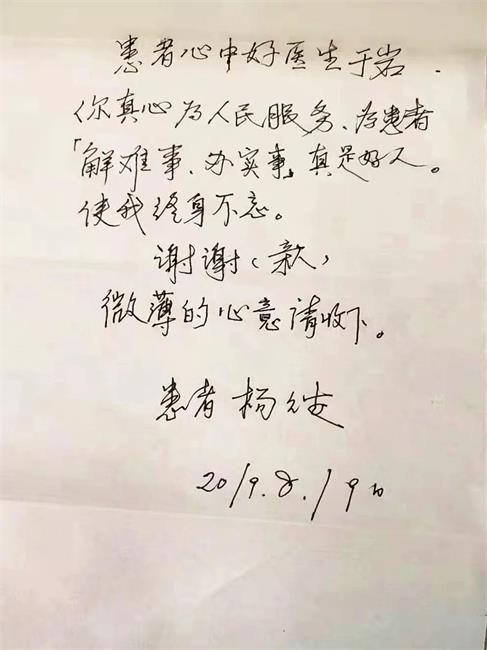 患者心中好医生于岩.
你真心为人民服务、为患者
「解难事、办实事」真是好人。
使我终身不忘。
谢谢(亲)
微薄的心意请收下。
患者 杨
2019.8.19日